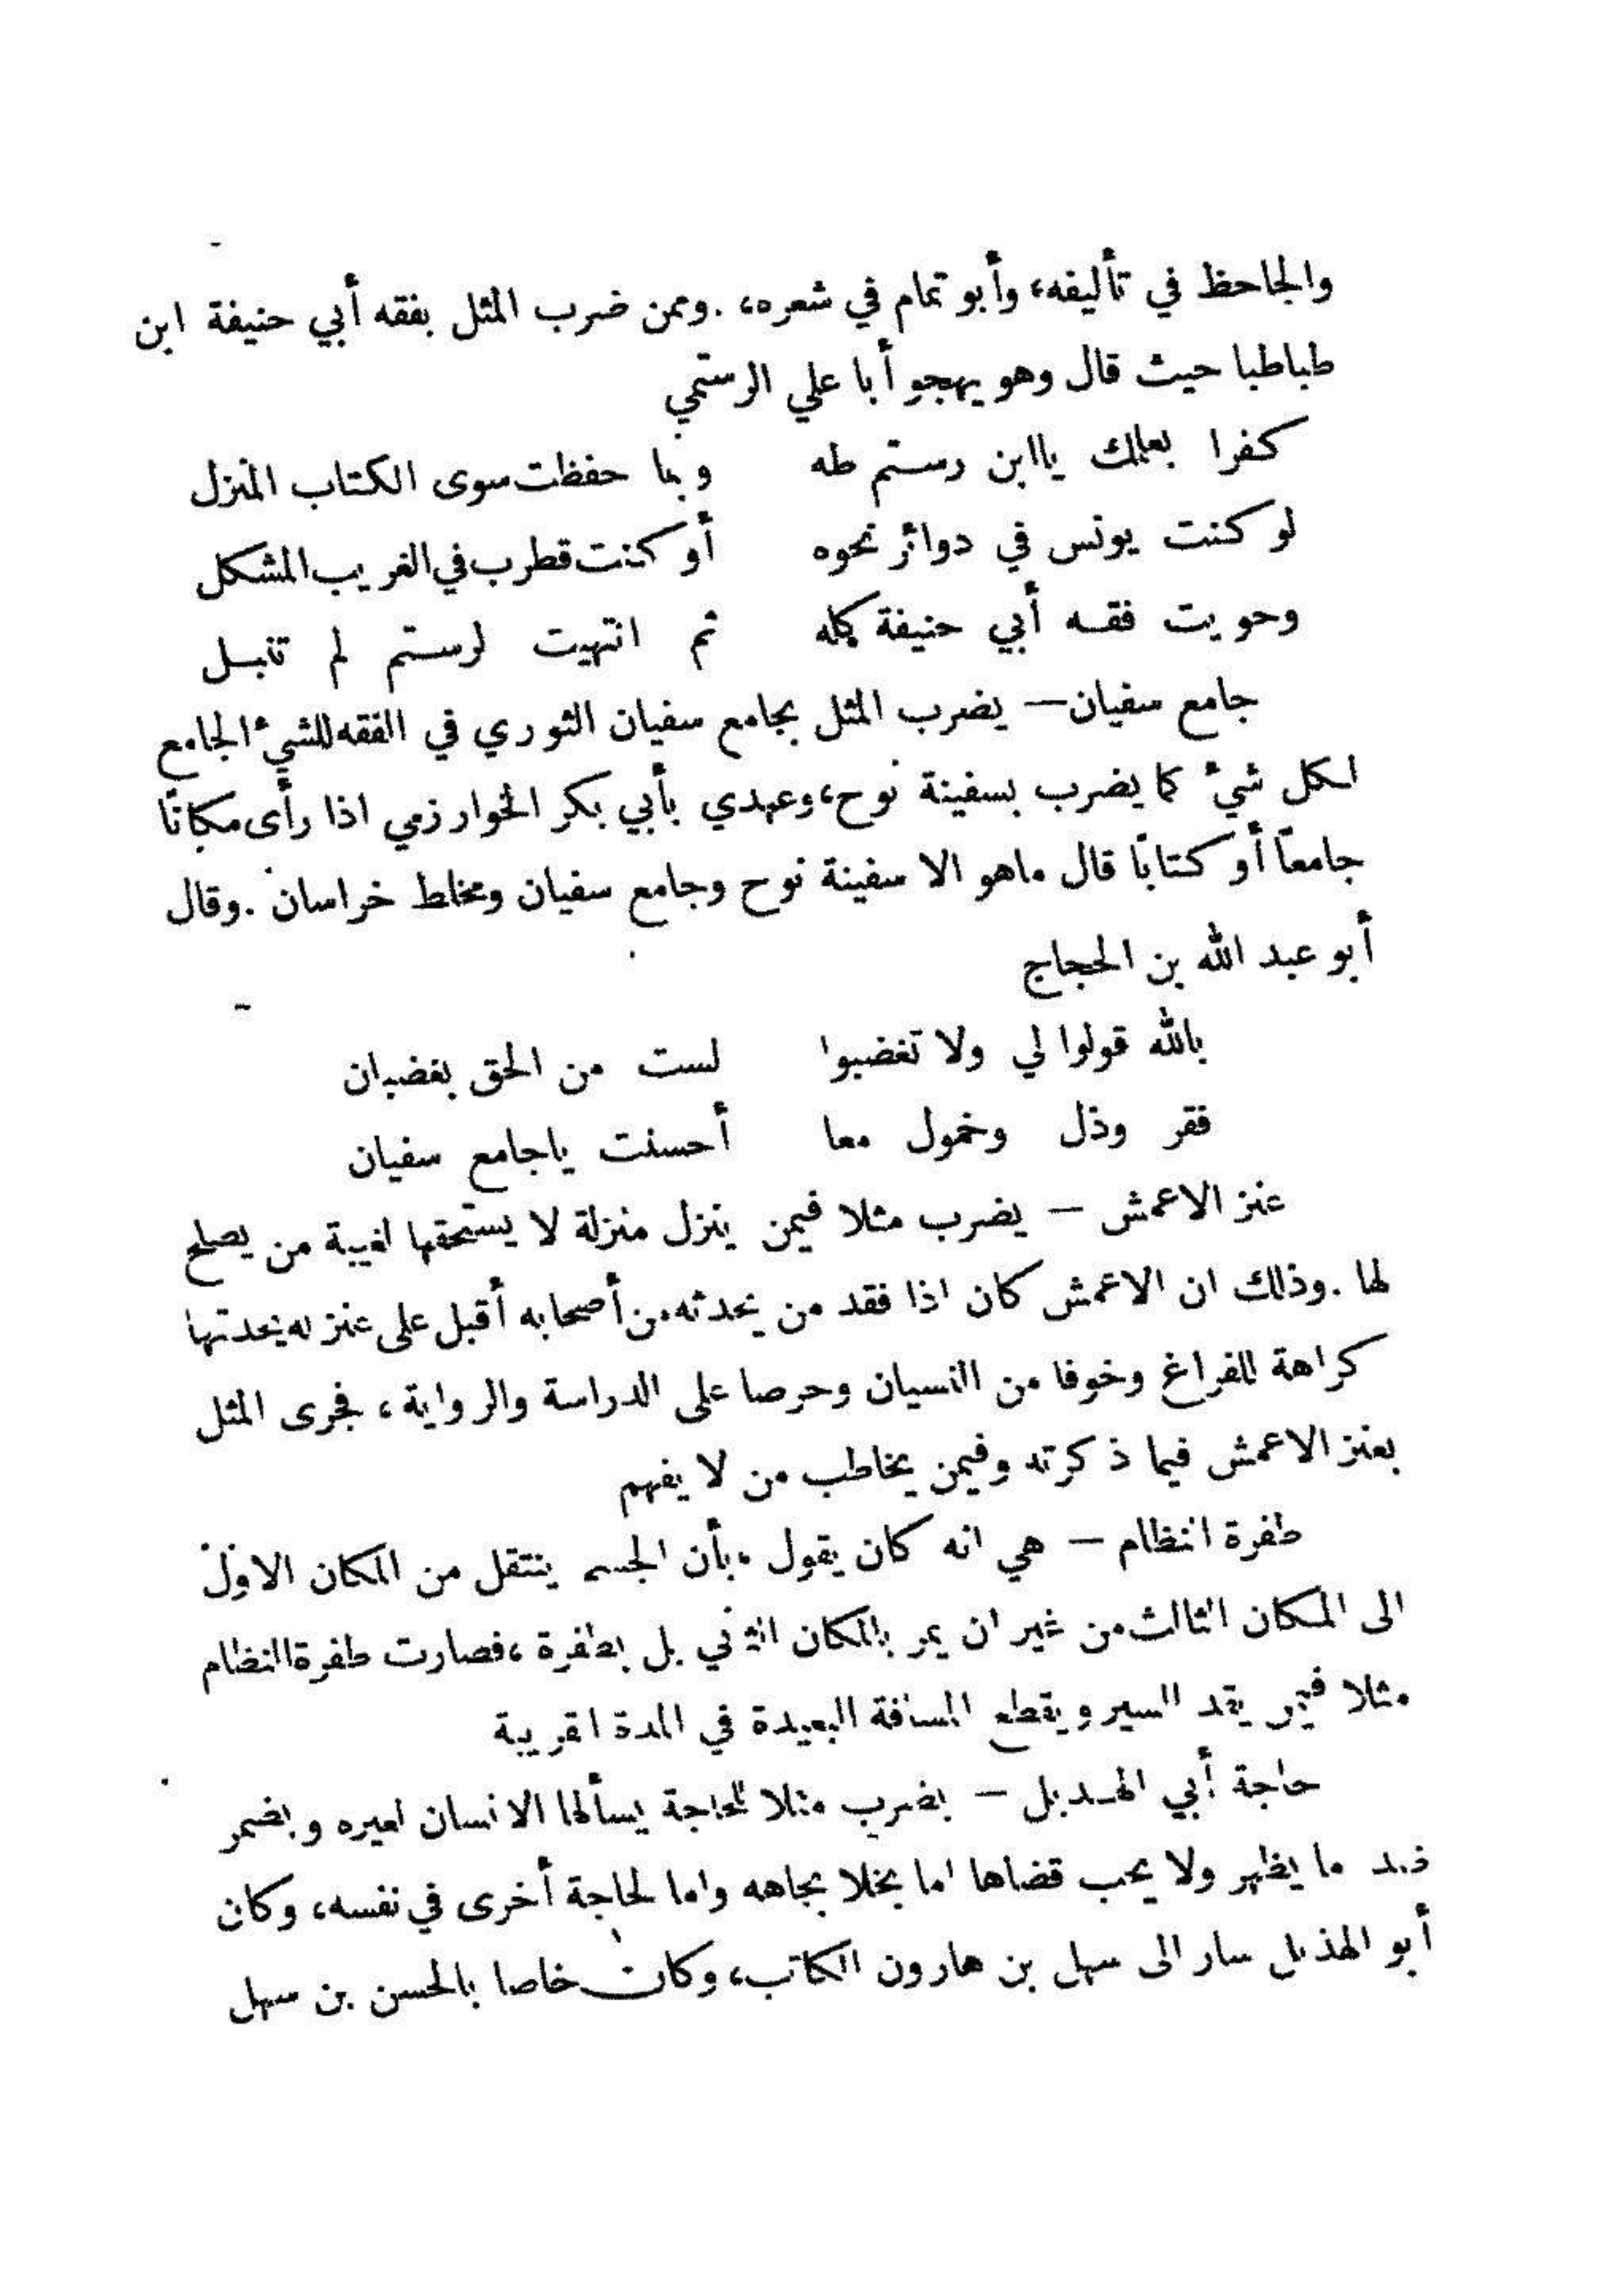 والجاحظ في تأليفه، وأبو تمام في شعره، . وممن ضرب المثل بفقه أبي حنيفة ابن
طباطبا حيث قال وهو يهجو أبا علي الرستمي
كفرا بعلمك ياابن رستم طه وبما حفظت سوى الكتاب المنزل
لو كنت يونس في دوائر نحوه أو كنت قطرب في الغريب المشكل
وحويت فقه أبي حنيفة كله ثم انتهيت لرستم لم تنبل
جامع سفيان — يضرب المثل بجامع سفيان الثوري في الفقه للشيء الجامع
لكل شيء كما يضرب بسفينة نوح، وعهدي بأبي بكر الخوارزمي اذا رأى مكانًا
جامعًا أو كتابًا قال ماهو الا سفينة نوح وجامع سفيان ومخلط خراسان . وقال
أبو عبد الله بن الحجاج
بالله قولوا لي ولا تغضبوا لست من الحق بغضبان
فقر وذل وخمول معا أحسنت ياجامع سفيان
عنز الاعمش — يضرب مثلا فيمن ينزل منزلة لا يستحقها لغيبة من يصلح
لها . وذلك ان الاعمش كان اذا فقد من يحدثه من أصحابه أقبل على عنز له يحدثها
كراهة للفراغ وخوفا من النسيان وحرصا على الدراسة والرواية، فجرى المثل
بعنز الاعمش فيما ذكرته وفيمن يخاطب من لا يفهم
طفرة النظام — هي انه كان يقول، بأن الجسم ينتقل من المكان الاول
الى المكان الثالث من غير ان يمر بالمكان الثاني بل بطفرة، فصارت طفرة النظام
مثلا فيمن يقد السير ويقطع المسافة البعيدة في المدة القريبة
حاجة أبي الهذيل — يضرب مثلا للحاجة يسألها الانسان لغيره ويضمر
ضد ما يظهر ولا يحب قضاها اما بخلا بجاهه واما لحاجة أخرى في نفسه، وكان
أبو الهذيل سار الى سهل بن هارون الكاتب، وكان خاصا بالحسن بن سهل